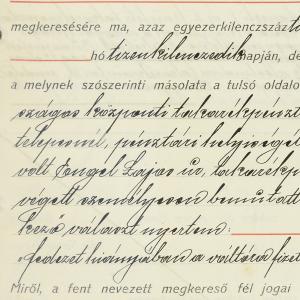 megkeresésére ma, azaz egyezerkilenczszáz
hó tizenkilenczedik napján, de
a melynek szószerinti másolata a túlsó oldalo
szágos központi takarékpénzt
telepemél, pénztári helyiségé
volt Engel Lajos úr, takarékp
végett személyesen bemutatt
kező választ nyertem:
fedezet hiányában a váltóra fizet
Miről, a fent nevezett megkereső fél jogai